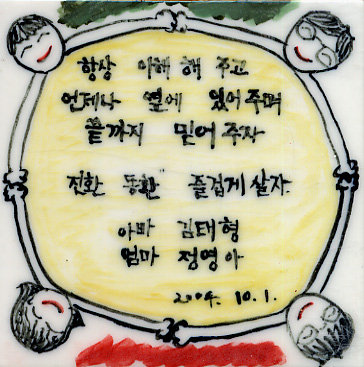 항상 이해 해 주고
언제나 옆에 있어 주며
끝까지 믿어 주자
전환 동환 즐겁게 살자
아빠 김태형
엄마 정영아
2004. 10. 1.